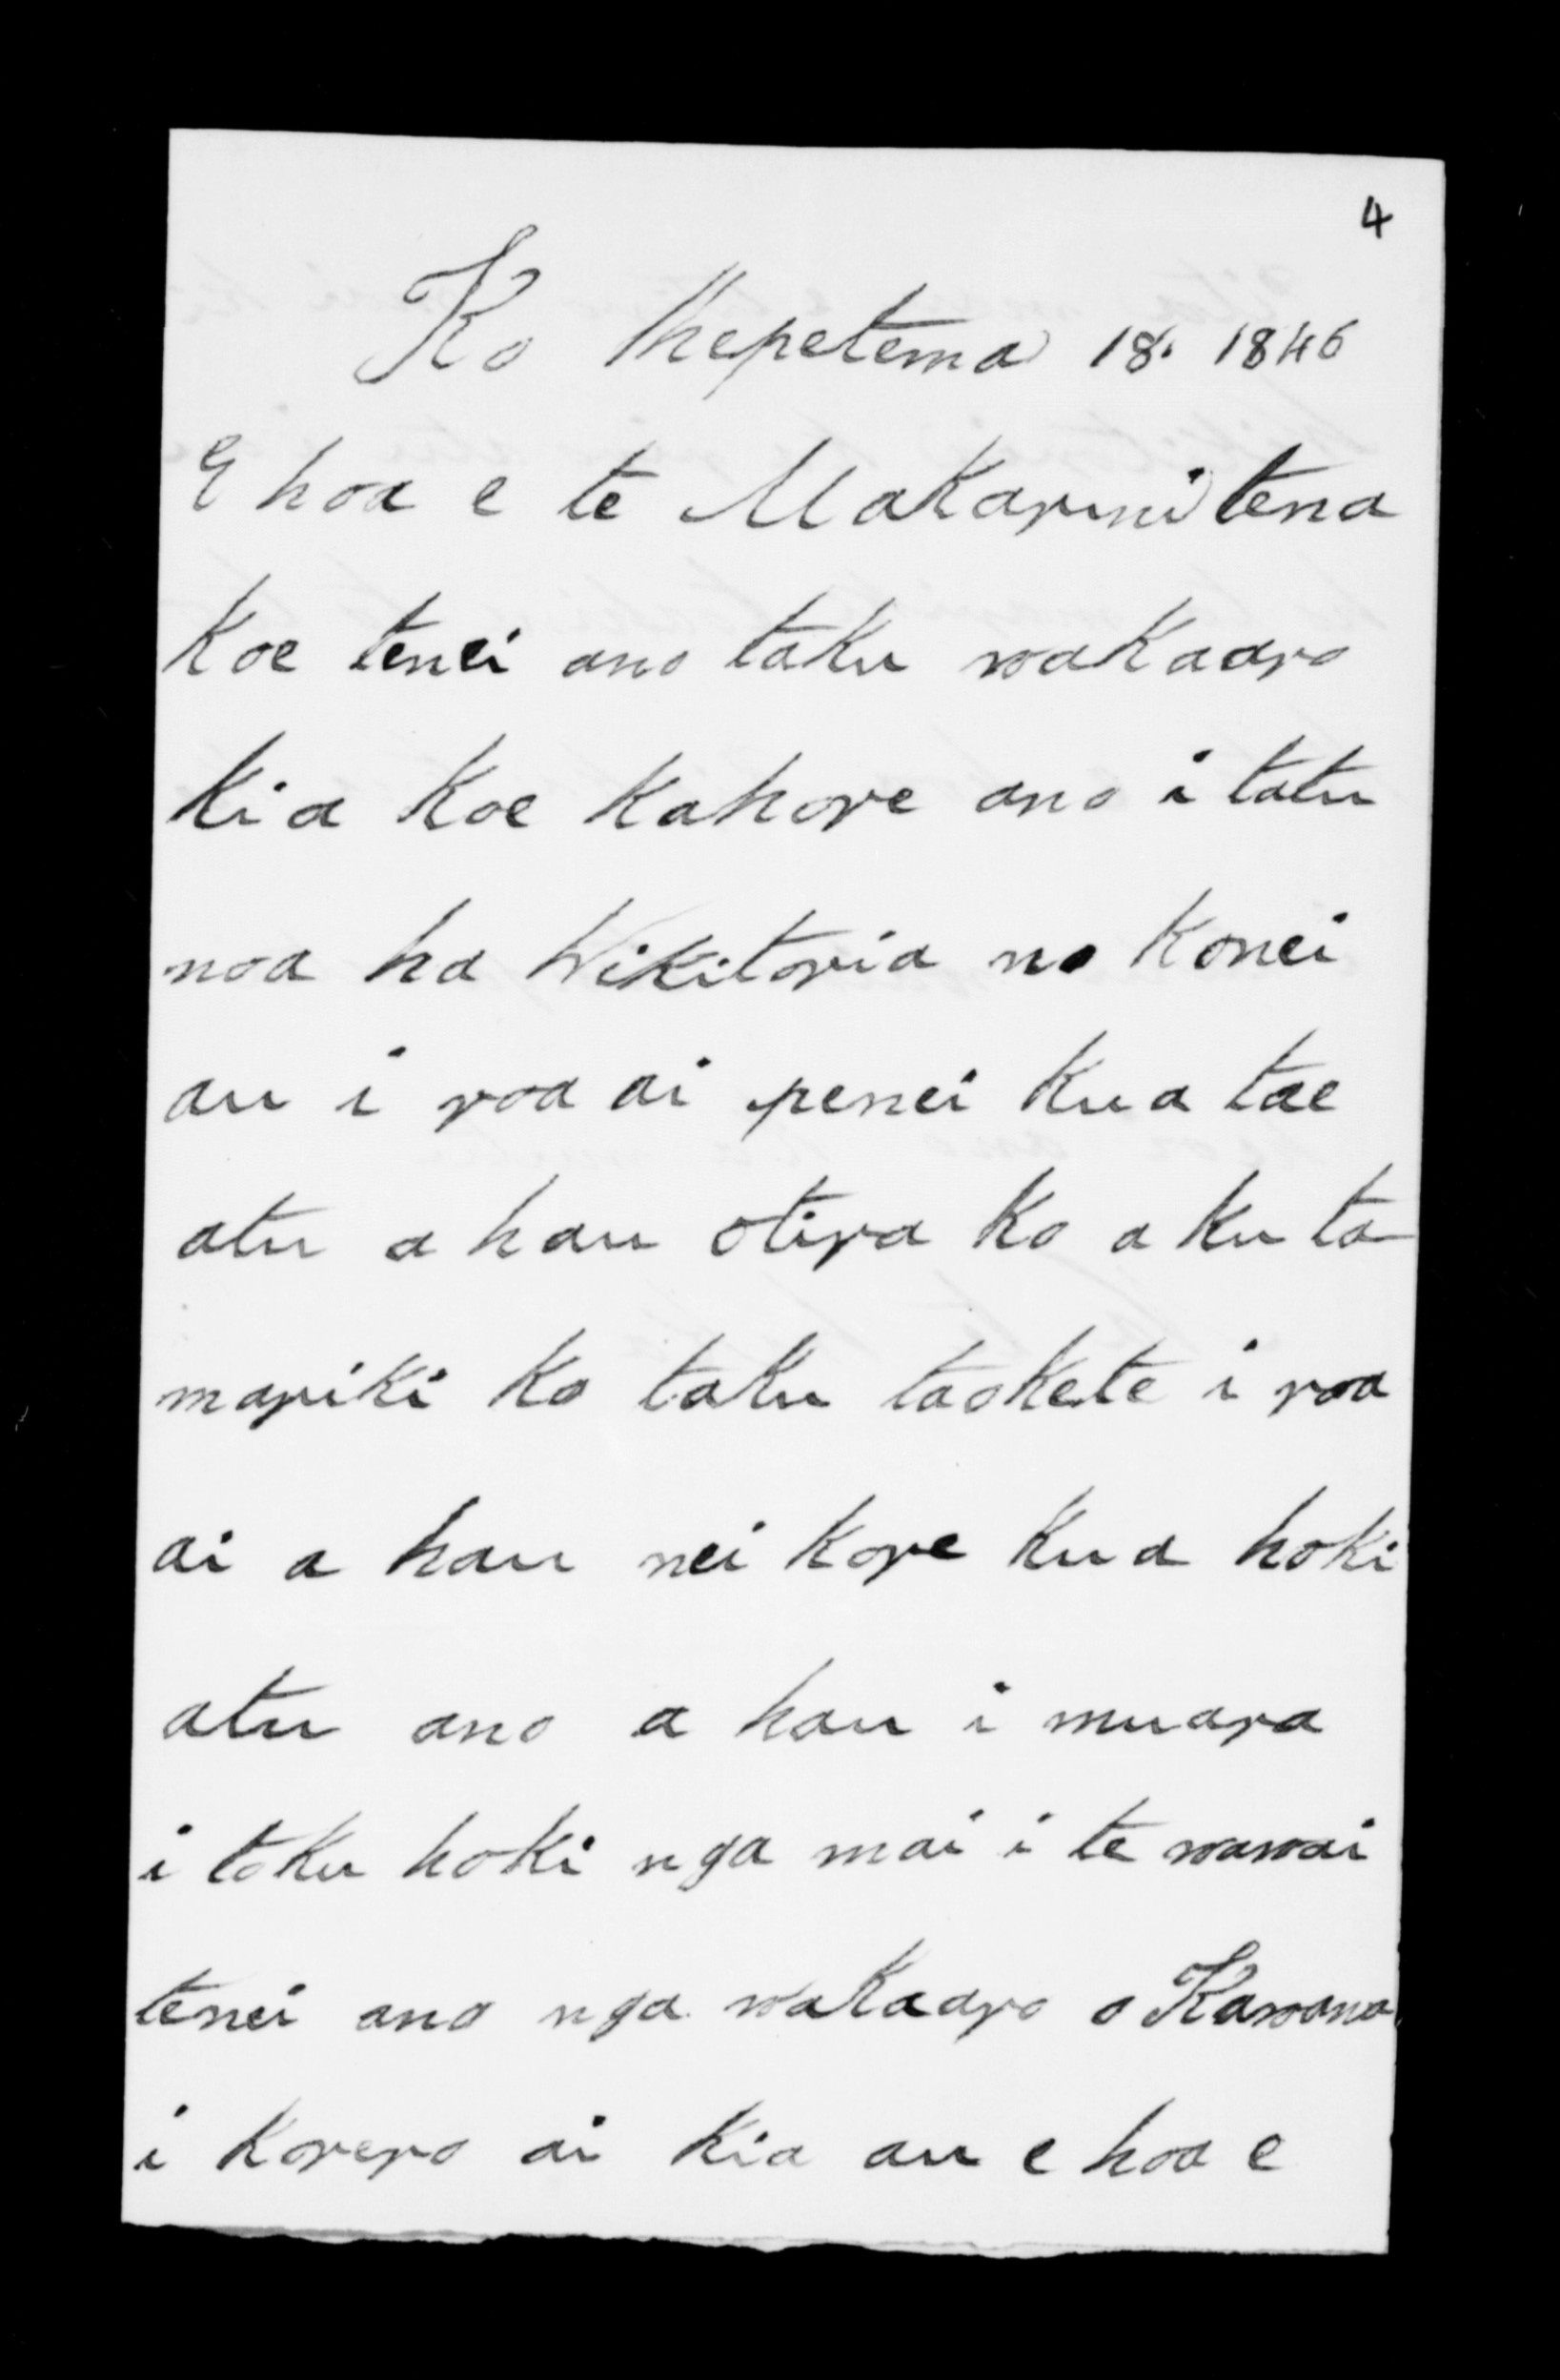 4
Ko Hepetema 18. 1846
E hoa e te Makarini tena
koe tenei ano taku wakaaro
ki a koe kahore ano i tatu
noa ha Wikitoria no konei
au i roa ai penei kua tae
atu a hau otira ko a ku ta
mariki ko taku taokete i roa
ai a hau nei kore kua hoki
atu ano a hau i muara
i toku hoki nga mai i te wawai
tenei ano nga wakaaro o Kawana
i korero ai kia au e hoa e